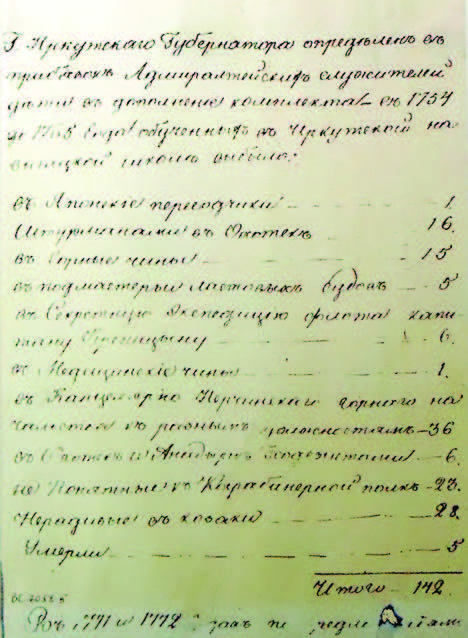 Г. Иркутскаго Губернатора опредѣленъ въ
Адмиралтейскихъ служителей
дѣти въ дополненіе комплекта съ 1754
по 1768 года обученныхъ въ Иркутской на-
вигацкой школѣ выбыло:
въ Японскіе переводчики — 1.
Штурманами въ Охотскъ — 16.
въ Горные чины — 15
въ подмастерьи ластовыхъ судовъ — 5
въ Секретную Экспедицію флота капи-
тану Креницыну — 6.
въ Медицинскіе чины — 1.
въ Канцелярію Нерчинскаго горнаго на-
чальства къ разнымъ должностямъ — 36
въ Охотскъ и Анадырь — 6.
не Понятные въ Карабинерной полкъ — 23.
Нерадивые въ козаки — 28.
Умерли — 5
Итого — 142.
Въ 1771 и 1772